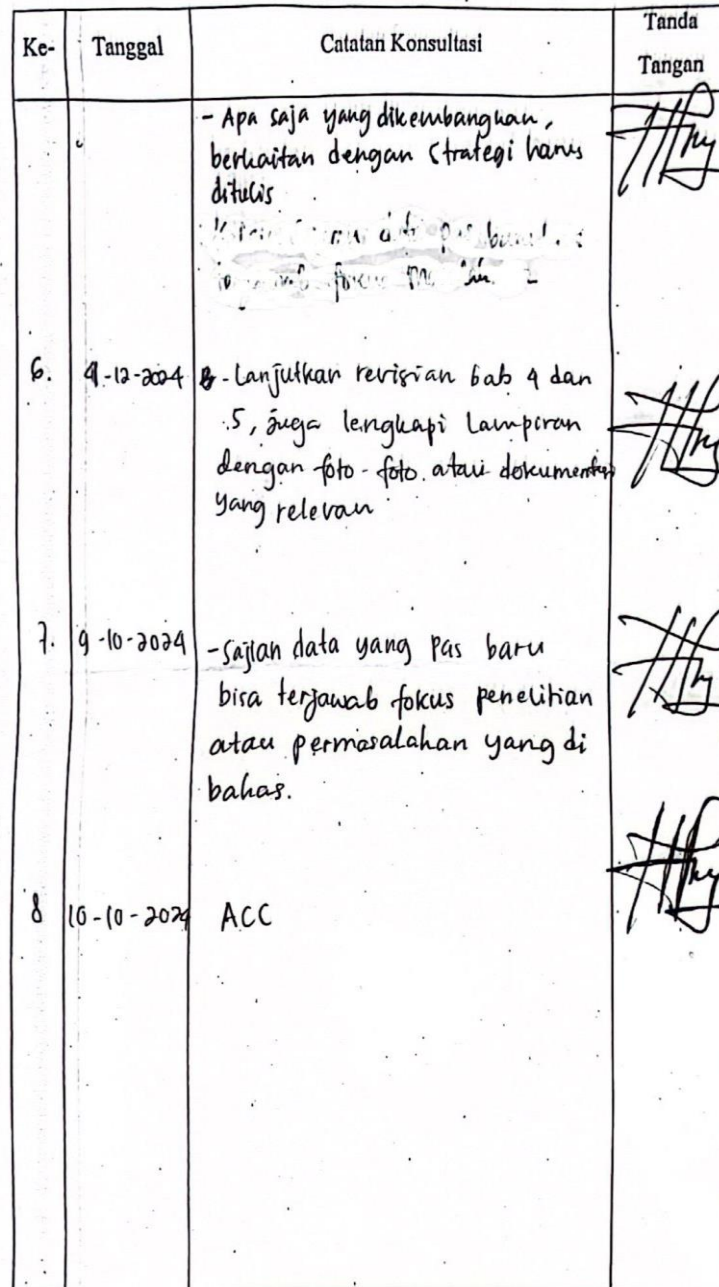 Ke- Tanggal Catatan Konsultasi Tanda Tangan
- Apa saja yang dikembangkan,
berkaitan dengan Strategi harus
ditulis
6. 4-12-2024 - Lanjutkan revisian bab 4 dan
5, juga lengkapi Lampiran
dengan foto-foto atau dokumentasi
yang relevan
7. 9-10-2024 - Sajian data yang pas baru
bisa terjawab fokus penelitian
atau permasalahan yang di
bahas.
8 10-10-2024 ACC